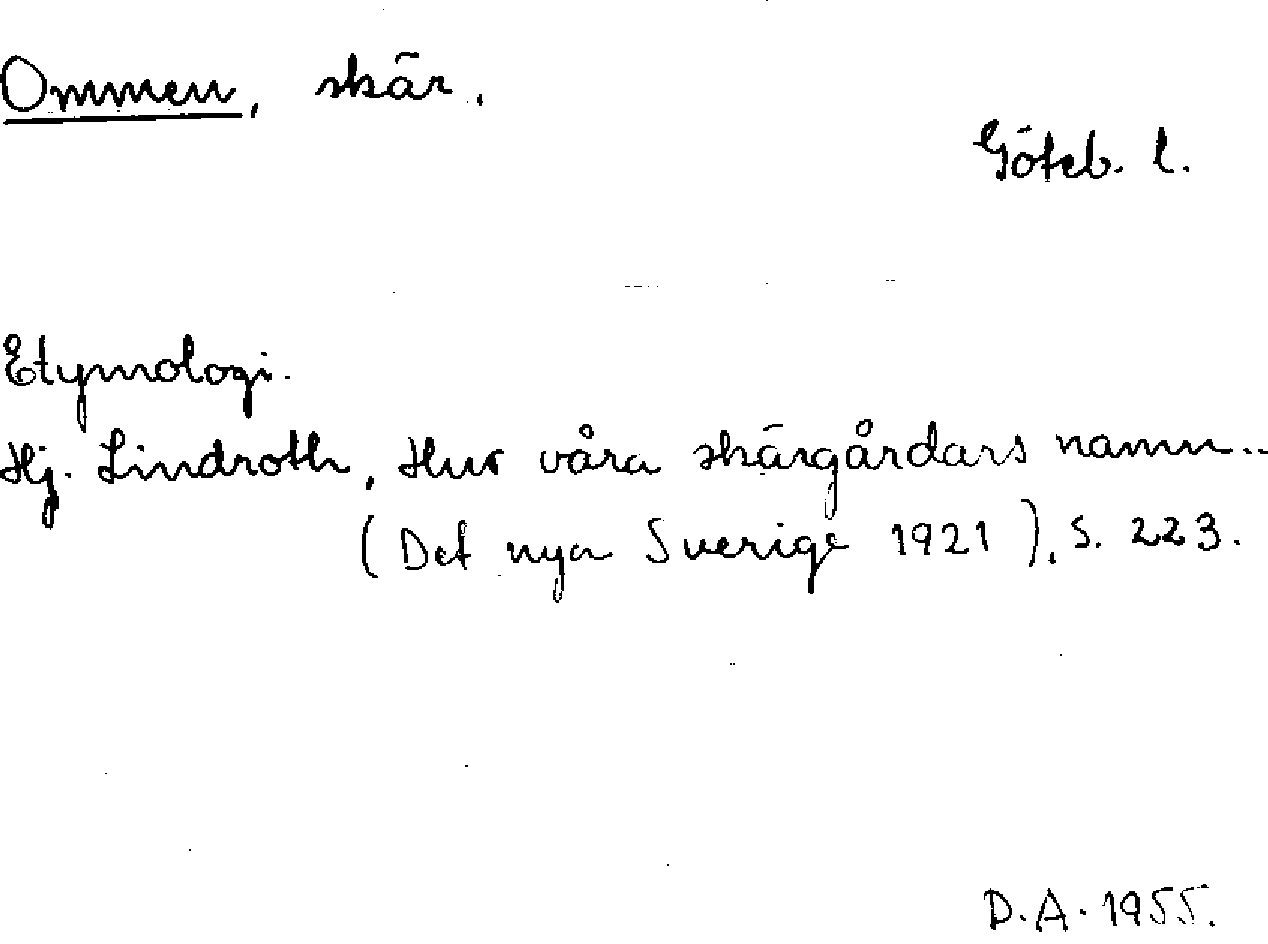 Ommen, skär.
Göteb. l.
Etymologi.
Hj. Lindroth, Hur våra skärgårdars namn..
(Det nya Sverige 1921), s. 223.
D.A. 1955.